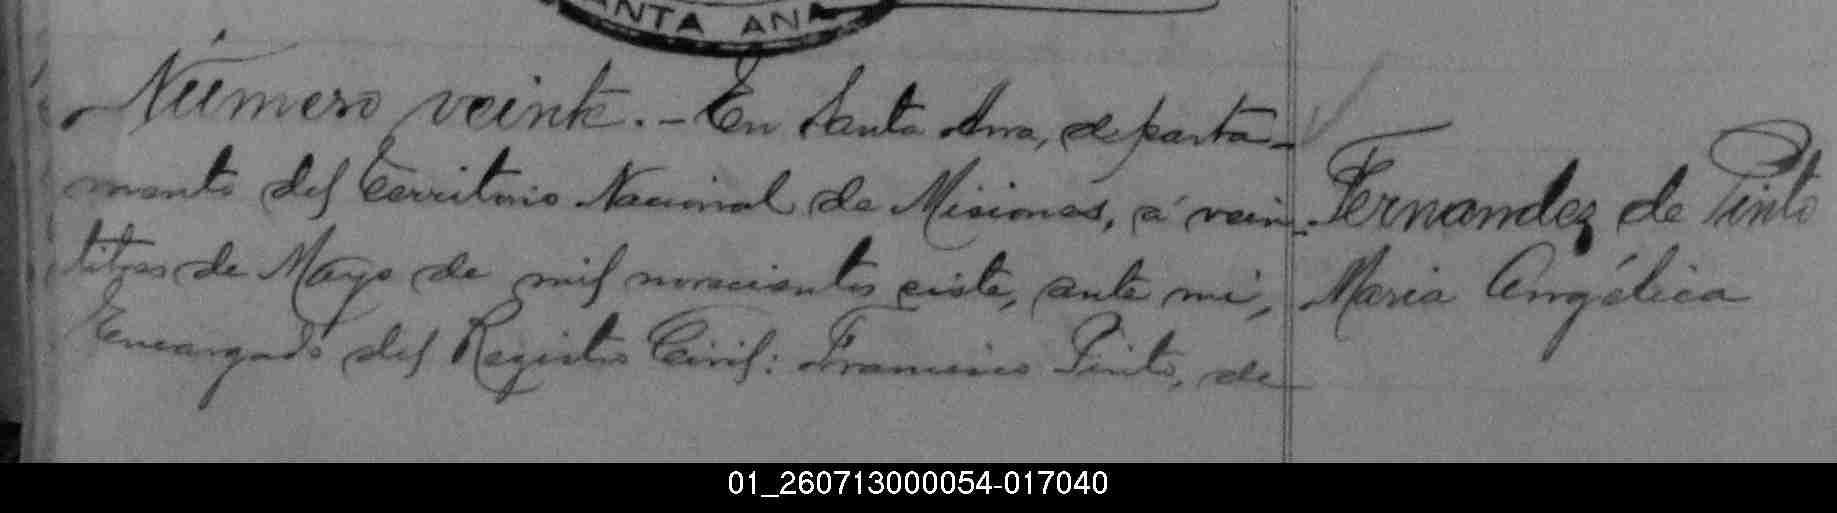 SANTA ANA
Número veinte. - En Santa Ana, departa-
mento del Territorio Nacional de Misiones, á vein-
titres de Mayo de mil novecientos siete, ante mi,
Encargado del Registro Civil: Francisco Pinto, de
Fernandez de Pinto
Maria Angélica
01_260713000054-017040